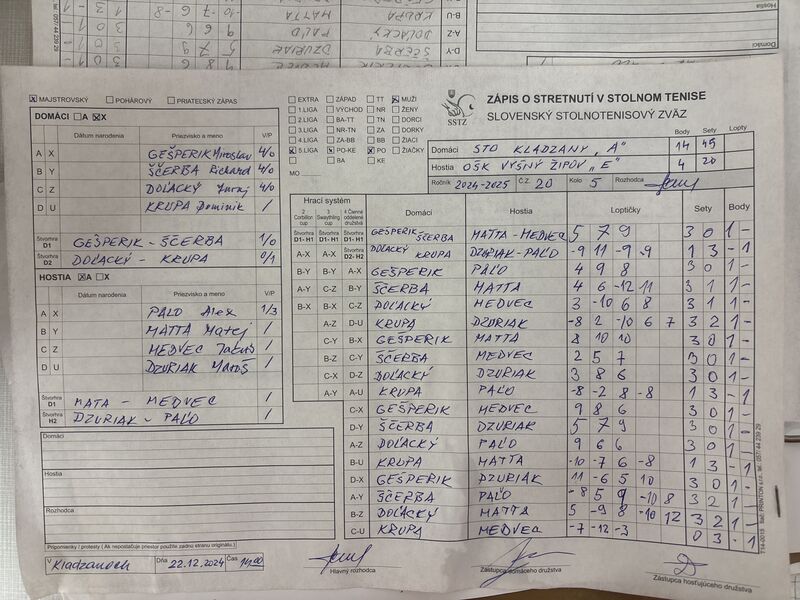 MAJSTROVSKÝ POHÁROVÝ PRIATEĽSKÝ ZÁPAS
DOMÁCI A X
Dátum narodenia Priezvisko a meno V/P
A X GEŠPERIK Miroslav 4/0
B Y ŠČERBA Richard 4/0
C Z DOĽACKÝ Juraj 4/0
D U KRUPA Dominik /
Štvorhra D1 GEŠPERIK - ŠČERBA 1/0
Štvorhra D2 DOĽACKÝ - KRUPA 0/1
HOSTIA A X
Dátum narodenia Priezvisko a meno V/P
A X PAĽO Alex 1/3
B Y MATTA Matej /
C Z MEDVEC /
D U DZURIAK Maroš /
Štvorhra D1 MATA - MEDVEC /
Štvorhra H2 DZURIAK - PAĽO /
Domáci
Hostia
Rozhodca
Pripomienky / protesty ( Ak nepostačuje priestor použite zadnú stranu originálu.)
V Kladzanoch Dňa 22.12.2024 Čas 14,00
EXTRA ZÁPAD TT MUŽI
1.LIGA VÝCHOD NR ŽENY
2.LIGA BA-TT TN DORCI
3.LIGA NR-TN ZA DORKY
4.LIGA ZA-BB BB ŽIACI
5.LIGA PO-KE PO ŽIAČKY
BA KE
MO
SSTZ
ZÁPIS O STRETNUTÍ V STOLNOM TENISE
SLOVENSKÝ STOLNOTENISOVÝ ZVÄZ
Body Sety Lopty
Domáci STO KLADZANY "A" 14 45
Hostia OŠK VYŠNÝ ŽIPOV "E" 4 20
Ročník 2024-2025 Č.Z. 20 Kolo 5 Rozhodca
Hrací systém Domáci Hostia Loptičky Sety Body
2 Corbillon cup 3 Swaythling cup 4 Členné oddelené družstvá
Štvorhra D1- H1 Štvorhra D1- H1 Štvorhra D1- H1 GEŠPERIK ŠČERBA MATTA - MEDVEC 5 7 9 3 0 1 -
A-X A-X Štvorhra D2- H2 DOĽACKÝ KRUPA DZURIAK - PAĽO -9 11 -9 -9 1 3 - 1
B-Y B-Y A-X GEŠPERIK PAĽO 4 9 8 3 0 1 -
A-Y C-Z B-Y ŠČERBA MATTA 4 6 -12 11 3 1 1 -
B-X B-X C-Z DOĽACKÝ MEDVEC 3 -10 6 8 3 1 1 -
A-Z D-U KRUPA DZURIAK -8 2 -10 6 7 3 2 1 -
C-Y B-X GEŠPERIK MATTA 8 10 10 3 0 1 -
B-Z C-Y ŠČERBA MEDVEC 2 5 7 3 0 1 -
C-X D-Z DOĽACKÝ DZURIAK 3 8 6 3 0 1 -
A-Y A-U KRUPA PAĽO -8 -2 8 -8 1 3 - 1
C-X GEŠPERIK MEDVEC 9 8 6 3 0 1 -
D-Y ŠČERBA DZURIAK 5 7 9 3 0 1 -
A-Z DOĽACKÝ PAĽO 9 6 6 3 0 1 -
B-U KRUPA MATTA -10 -7 6 -8 1 3 - 1
D-X GEŠPERIK DZURIAK 11 -6 5 10 3 0 1 -
A-Y ŠČERBA PAĽO -8 5 9 -10 8 3 2 1 -
B-Z DOĽACKÝ MATTA 5 -9 8 -10 12 3 2 1 -
C-U KRUPA MEDVEC -7 -12 -3 0 3 - 1
Hlavný rozhodca
Zástupca domáceho družstva
Zástupca hosťujúceho družstva